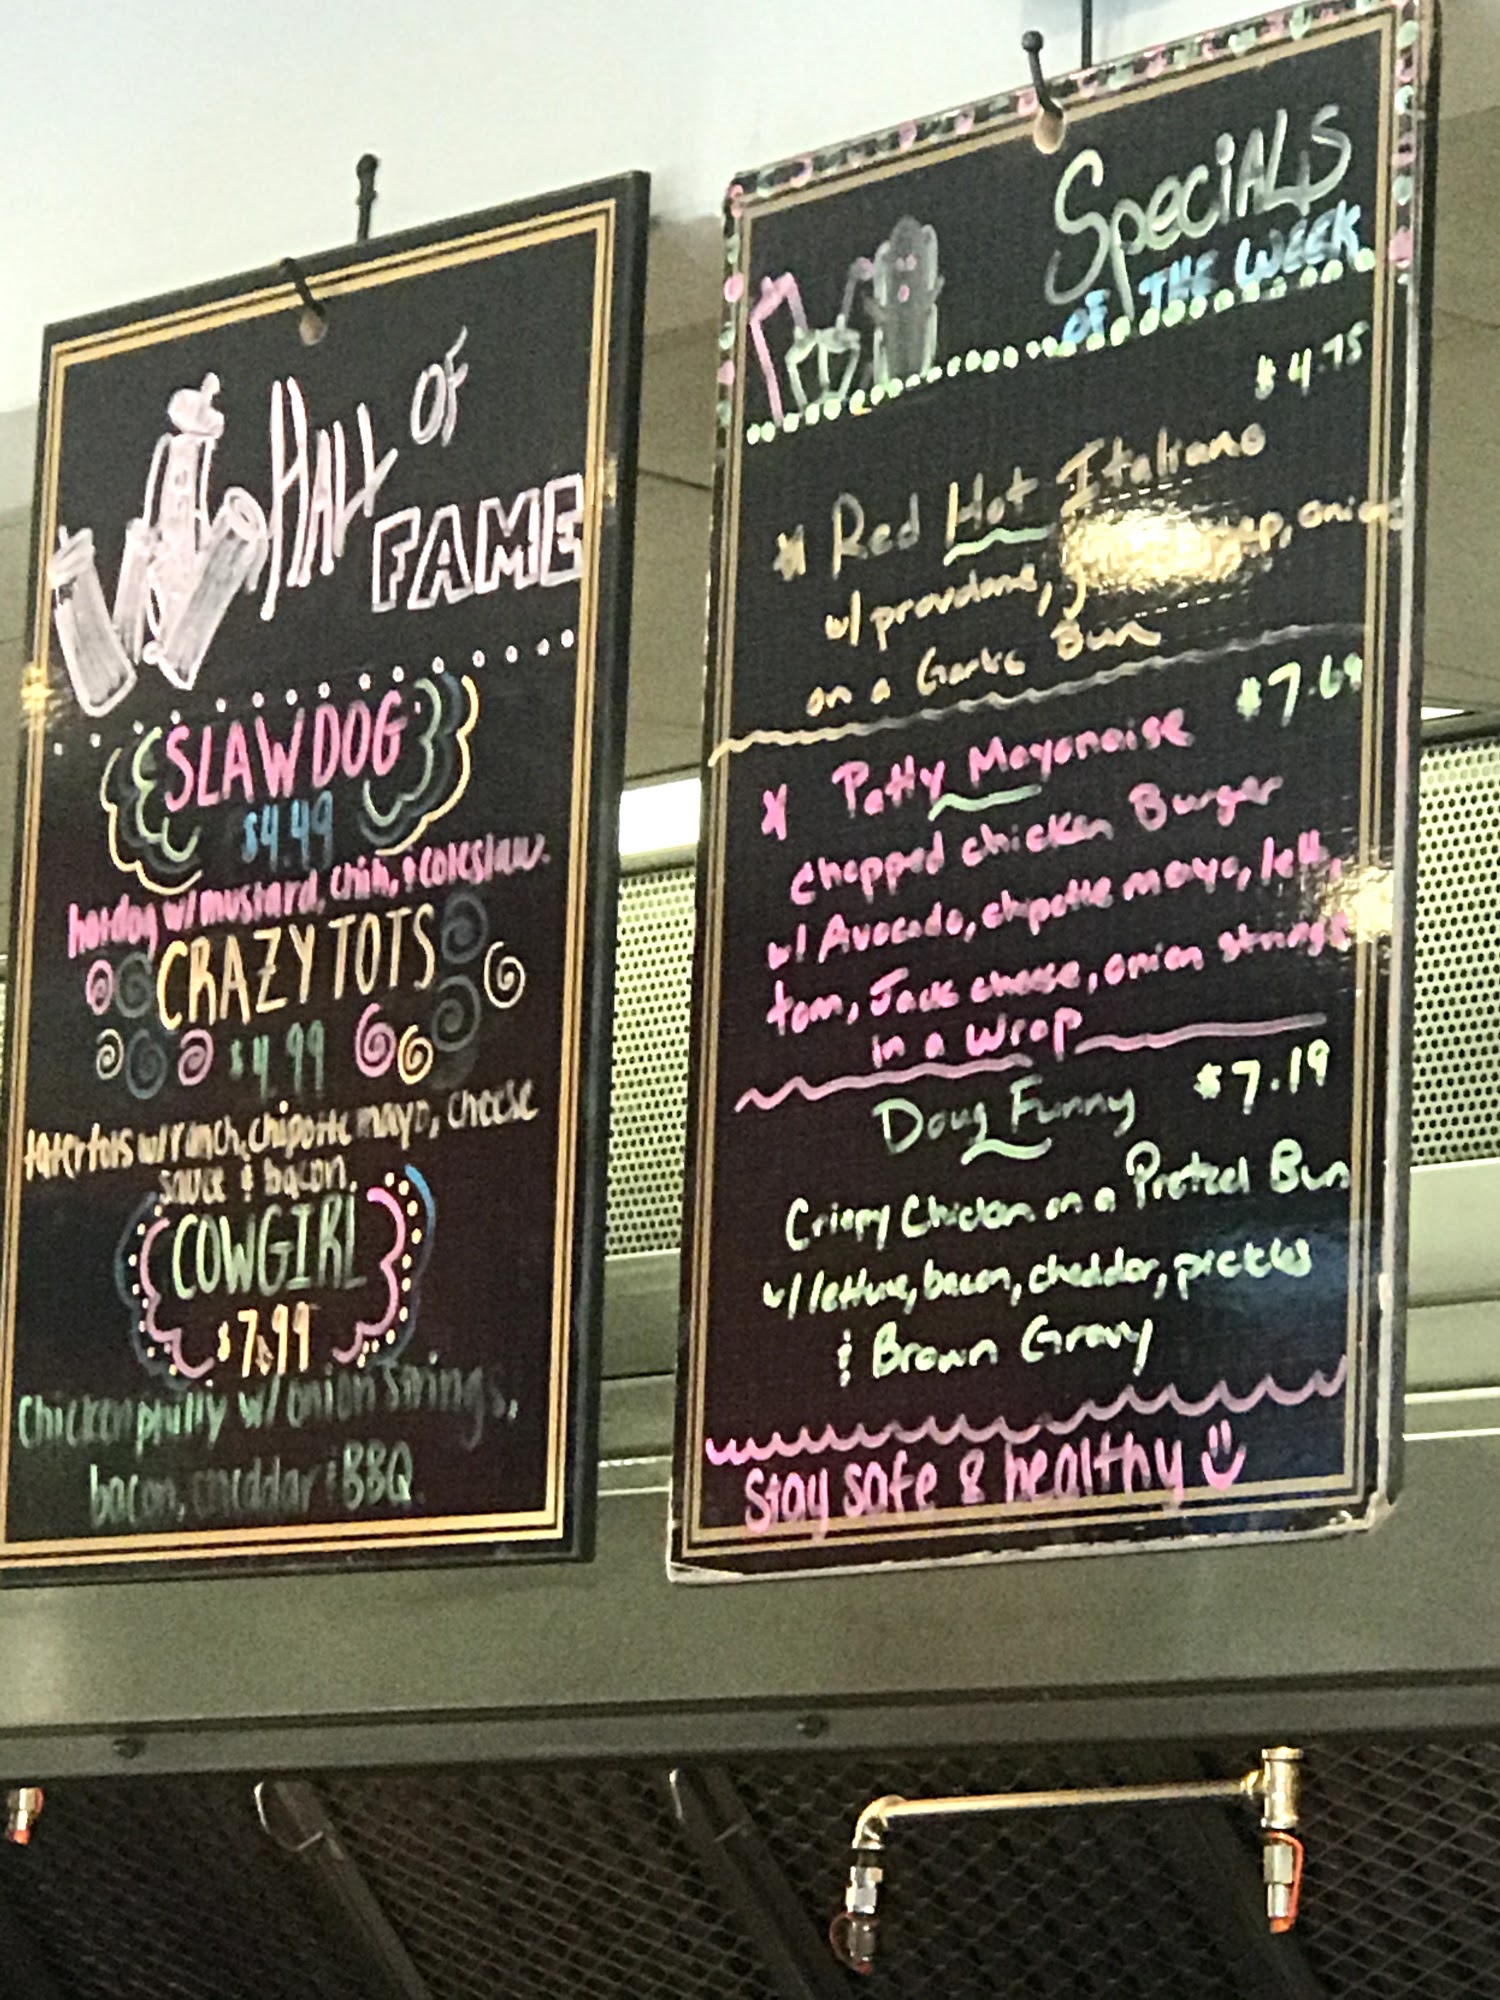 HALL OF
FAME
SLAW DOG
$4.49
hotdog w/mustard, chili, & coleslaw.
CRAZY TOTS
$4.99
tatertots w/ranch, chipotle mayo, cheese
sauce & bacon.
COWGIRL
$7.99
Chicken philly w/ onion strings,
bacon, cheddar & BBQ
Specials
OF THE WEEK
$4.75
* Red Hot Italiano
w/ provolone, onion
on a Garlic Bun
$7.69
* Patty Mayonaise
chopped chicken Burger
w/ Avocado, chipotle mayo, lett,
tom, Jack cheese, onion strings
in a wrap
Doug Funny $7.19
Crispy Chicken on a Pretzel Bun
w/ lettuce, bacon, cheddar, pickles
& Brown Gravy
Stay safe & healthy